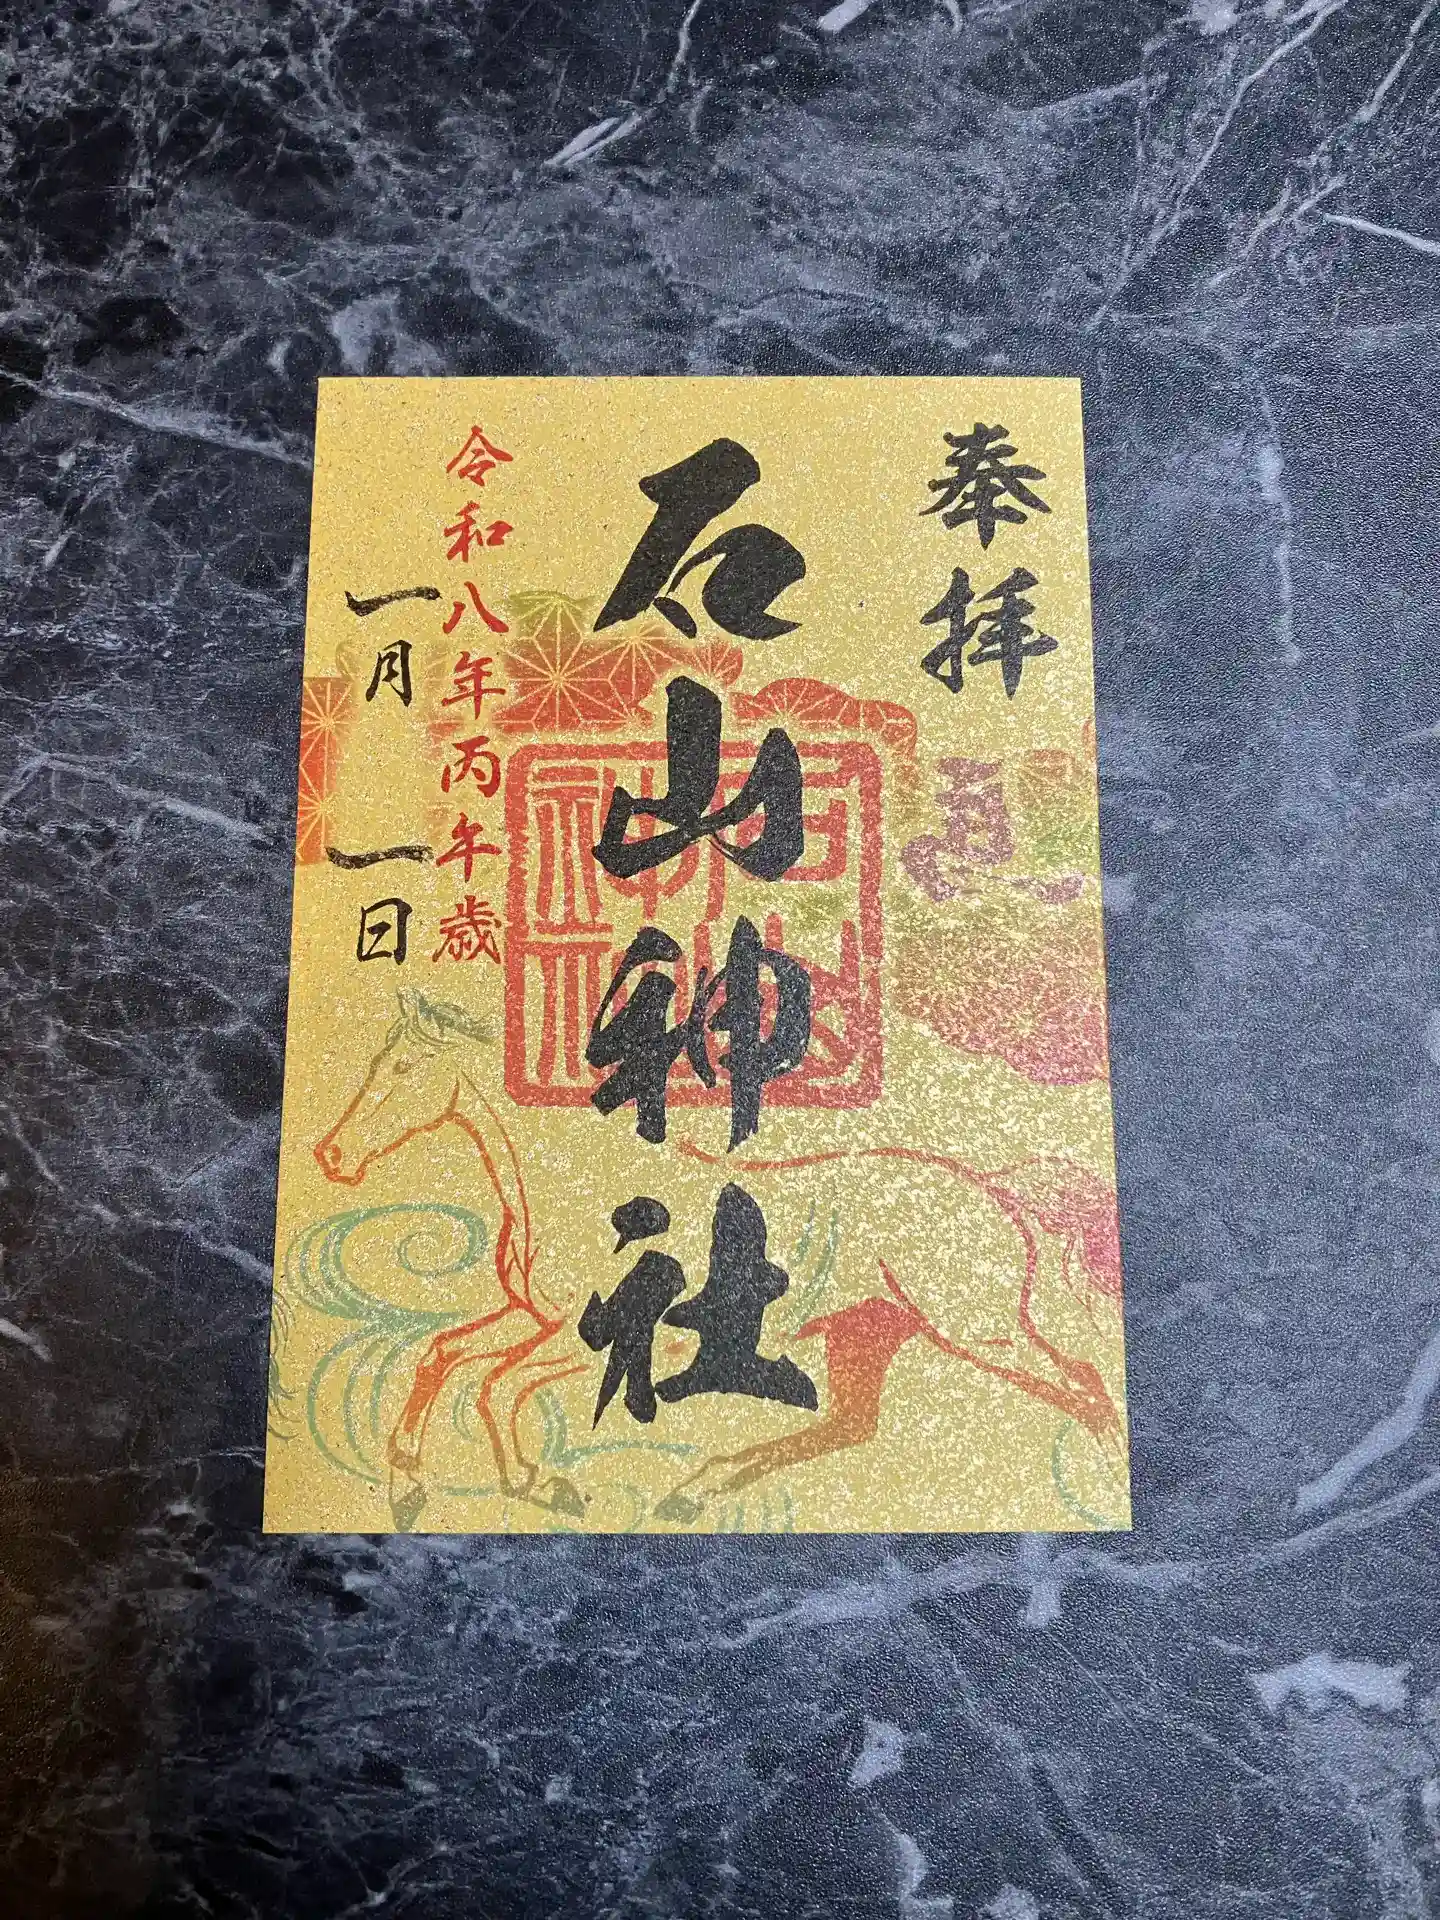 奉拝
石山神社
石山神社
令和八年丙午歳
一月 一日